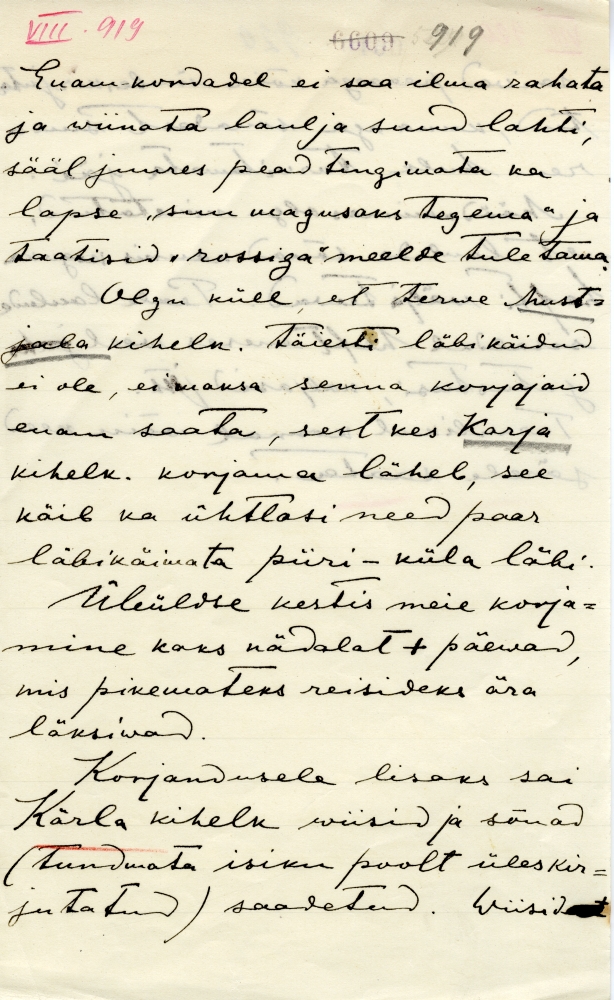 VIII. 919
6609 919
Enam kordadel ei saa ilma rahata
ja wiinata laulja suud lahti,
sääl juures pead tingimata ka
lapse „suu magusaks tegema“ ja
taatisid „rossiga“ meelde tuletama.
Olgu küll, et terwe Must=
jala kihelk. täiesti läbikäidud
ei ole, ei maksa senna korjajaid
enam saata, sest kes Karja
kihelk. korjama läheb, see
käib ka ühtlasi need paar
läbikäimata piiri-küla läbi.
Üleüldse kestis meie korja=
mine kaks nädalat + päewad,
mis pikemateks reisideks ära
läksiwad.
Korjandusele lisaks sai
Kärla kihelk wiisid ja sõnad
(tundmata isiku poolt üleskir=
jutatud) saadetud. Wiisid